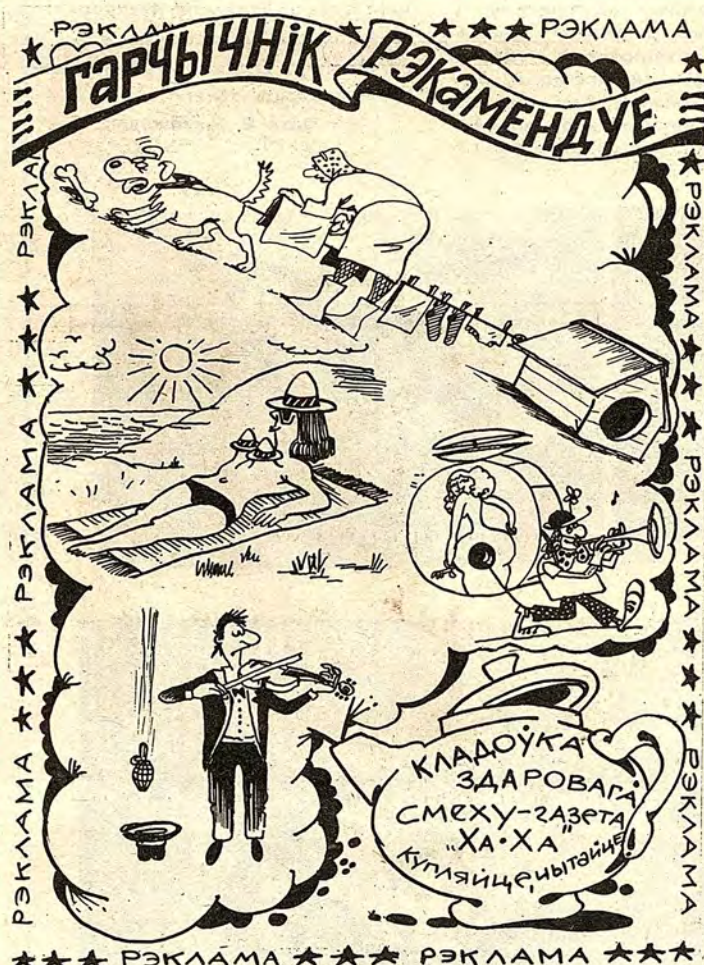 РЭКЛАМА ★ ★ ★ РЭКЛАМА
ГАРЧЫЧНІК РЭКАМЕНДУЕ
РЭКЛАМА ★ ★ ★ РЭКЛАМА ★ ★ ★ РЭКЛАМА
РЭКЛАМА ★ ★ ★ РЭКЛАМА ★ ★ ★ РЭКЛАМА
КЛАДОЎКА
ЗДАРОВАГА
СМЕХУ-ГАЗЕТА
„ХА·ХА"
КУПЛЯЙЦЕ, ЧЫТАЙЦЕ!
★ ★ ★ РЭКЛАМА ★ ★ ★ РЭКЛАМА ★ ★ ★